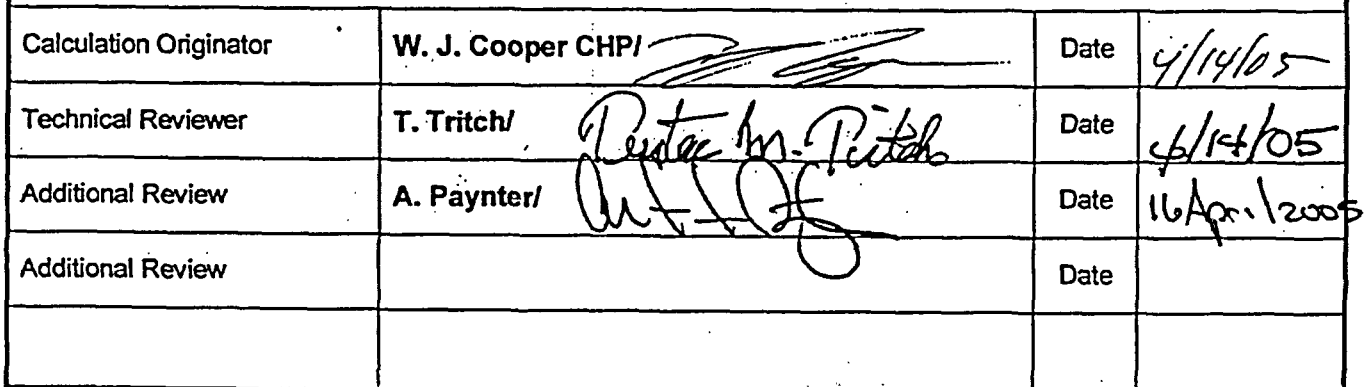 Calculation Originator W. J. Cooper CHP/ Date 4/14/05
Technical Reviewer T. Tritch/ Date 4/14/05
Additional Review A. Paynter/ Date 16 April 2005
Additional Review Date